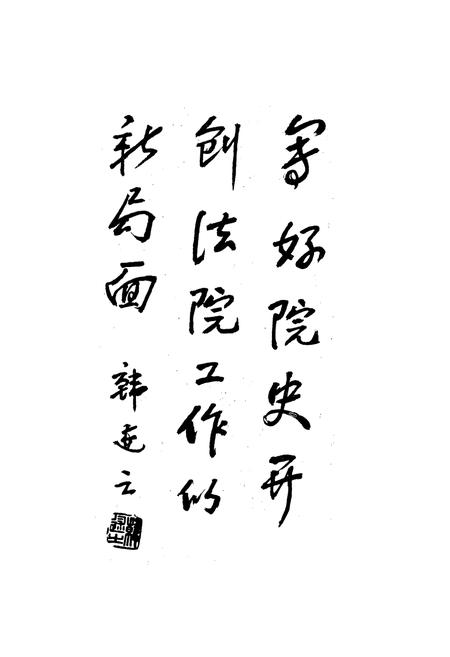 写好院史开
创法院工作的
新局面
韩
云